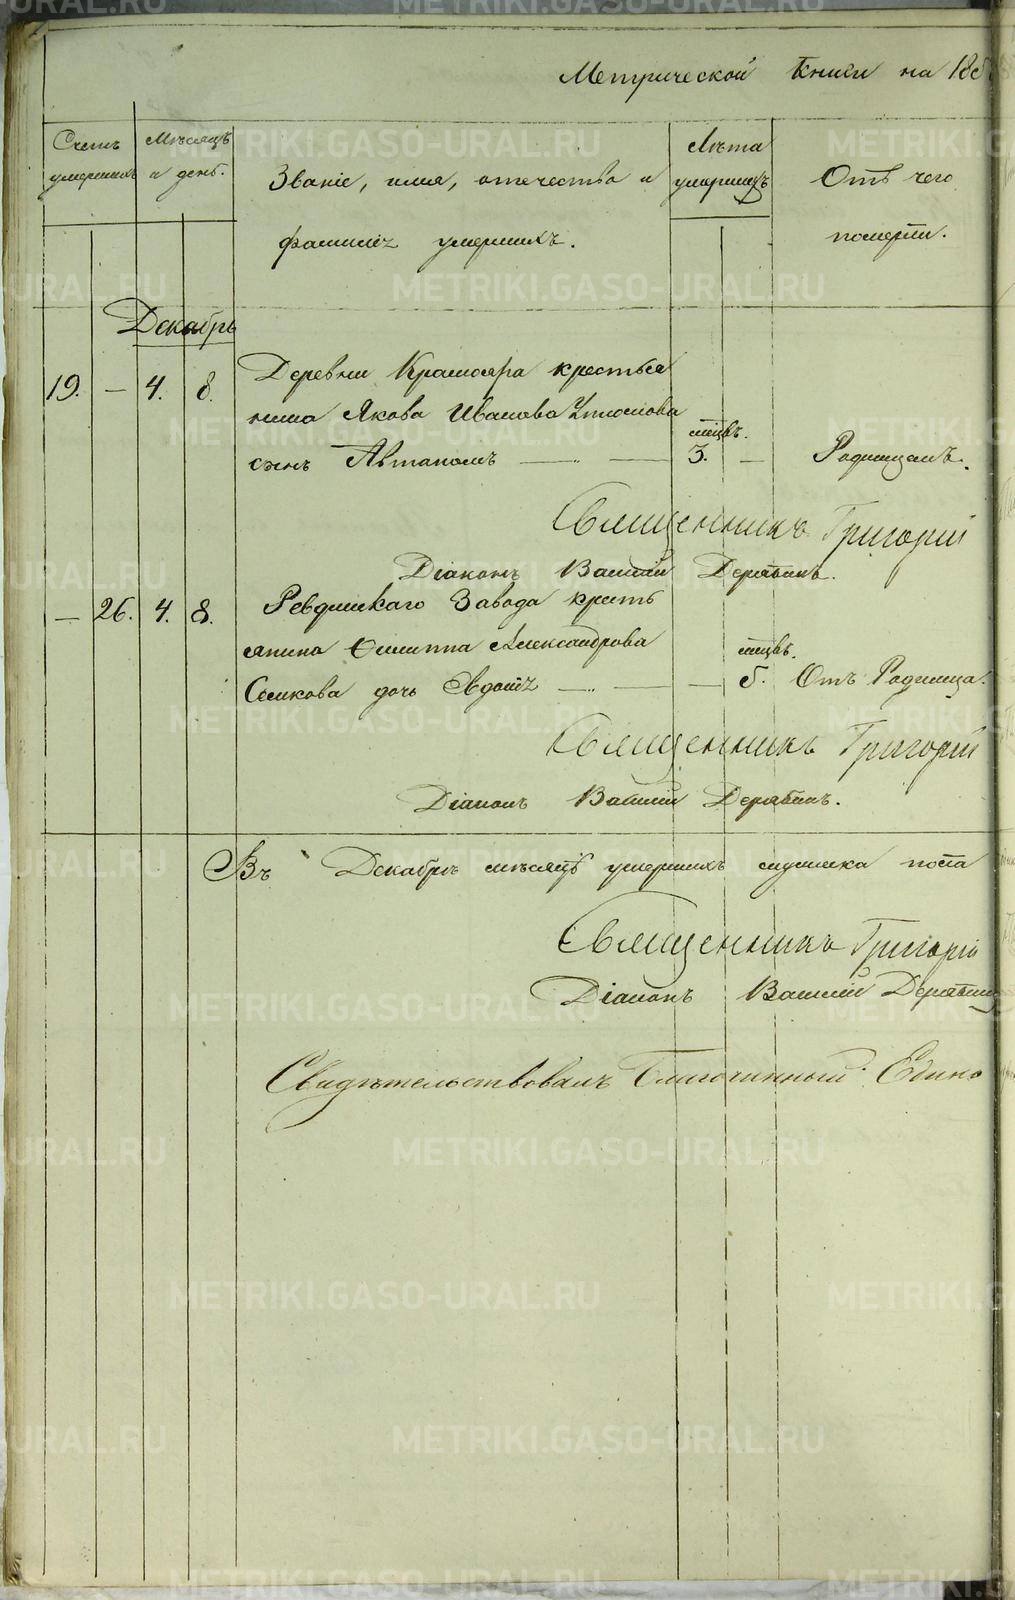 Метрической книги на 185
Счетъ умершихъ
Мѣсяцъ и день.
Званіе, имя, отчество и
фамилія умершихъ.
Лѣта умершихъ
Отъ чего
померли.
Декабрь
19. — 4. 8. Деревни Краснояра крестья
нина Якова Иванова
сынъ Автаномъ — — мцвъ. 3. — Родимцемъ.
Священникъ Григорій
Діаконъ Василій Дерябинъ.
— 26. 4. 8. Ревдинскаго Завода кресть
янина Филиппа Александрова
дочь Евдокія — — — мцвъ. 5. Отъ Родимца.
Священникъ Григорій
Діаконъ Василій Дерябинъ.
Въ Декабрѣ мѣсяцѣ умершихъ мужеска пола
Священникъ Григорій
Діаконъ Василій Дерябинъ
Свидѣтельствовалъ Благочинный Едино
METRIKI.GASO-URAL.RU